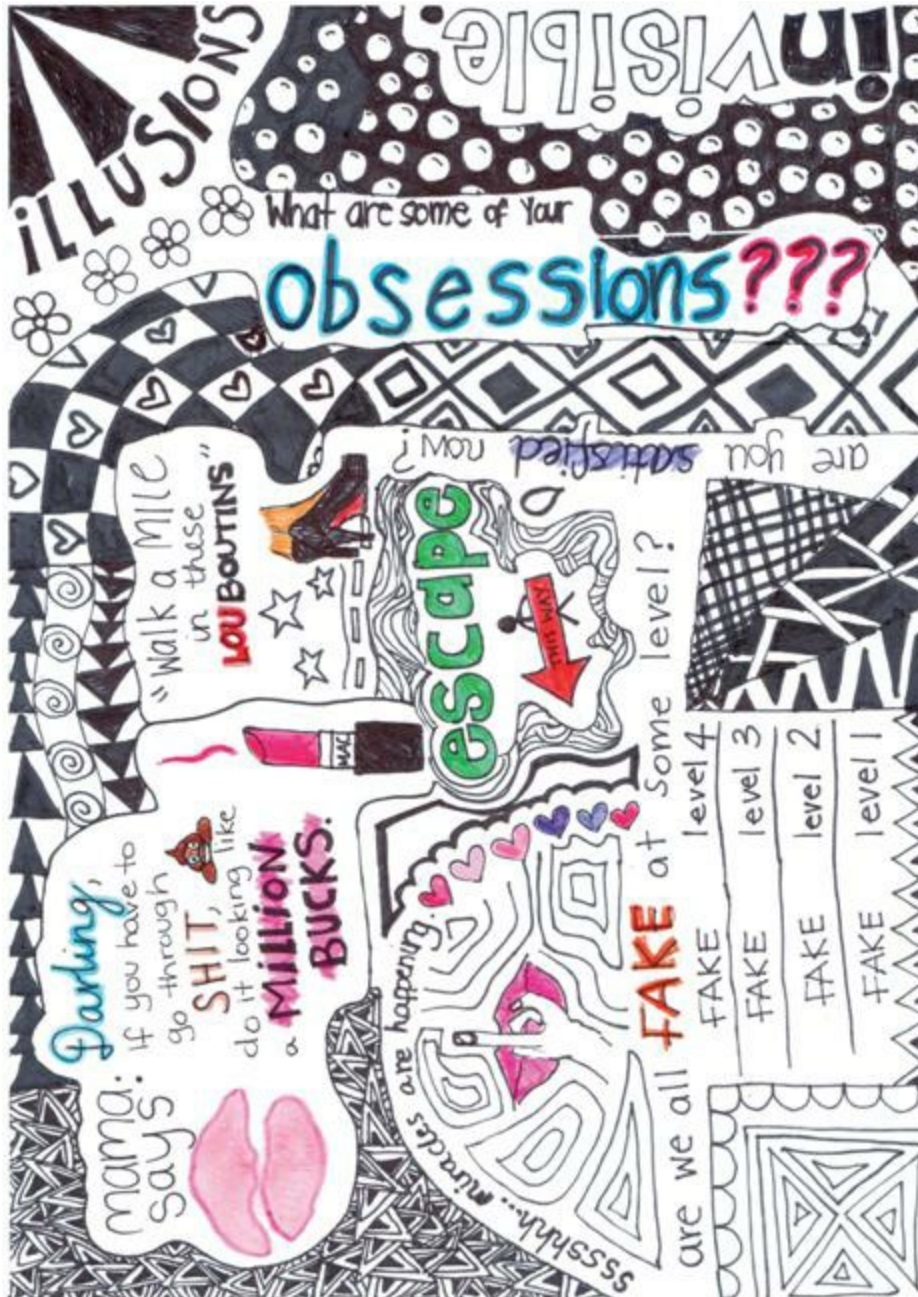 iLLUSIONS
invisible
What are some of Your
obsessions???
are you satisfied now?
"Walk a MILE
in these
LOUBOUTINS"
escape
THIS WAY
MAC
mama:
says
Darling,
If you have to
go through
SHIT,
do it looking like
a MiLLiON
BUCKS.
sssshhh...miracles are happening.
are we all FAKE at some level?
FAKE level 4
FAKE level 3
FAKE level 2
FAKE level 1